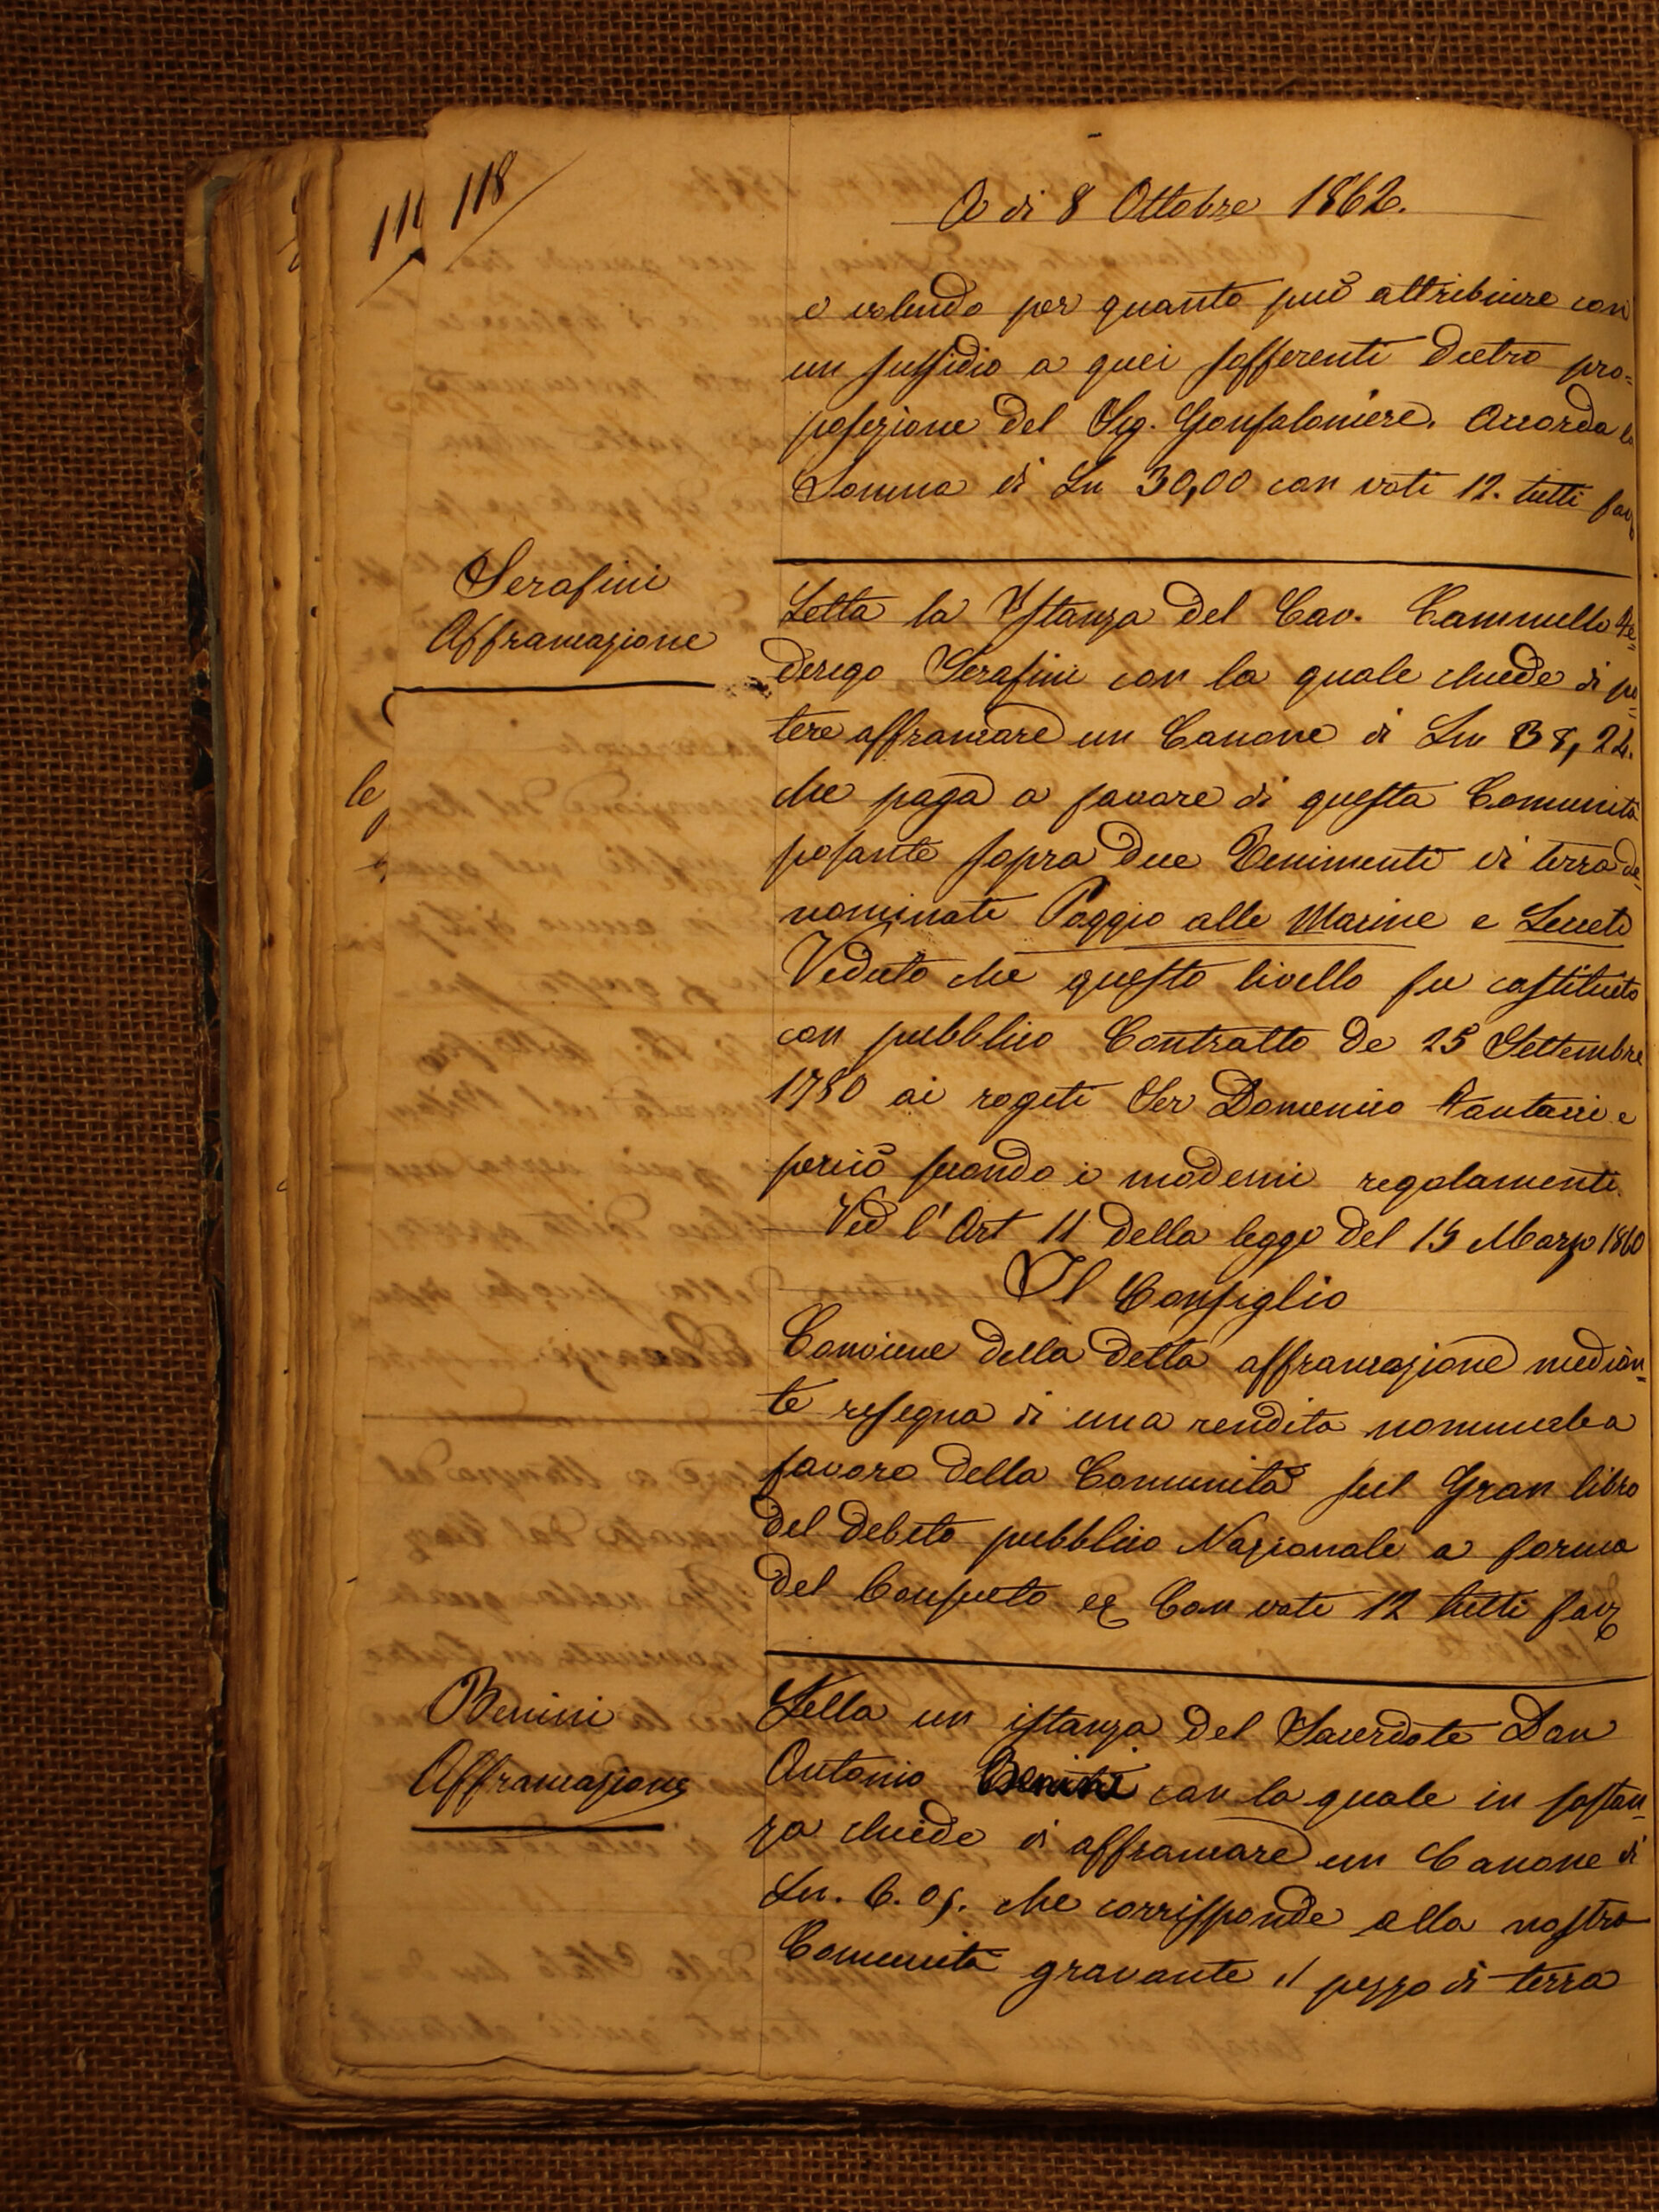 118
A di 8 Ottobre 1862.
e volendo per quanto può attribuire con
un sussidio a quei sofferenti dietro pro=
posizione del Sig. Gonfaloniere. Accorda la
Somma di Ln 30,00 con voti 12. tutti fav
Serafini
Affrancazione
Letta la Istanza del Cav. Cammillo Fe=
derigo Serafini con la quale chiede di po=
tere affrancare un Canone di Ln
che paga a favore di questa Comunità
posante sopra due Tenimenti di terra de=
nominati Poggio alle Marine e Lecceto
Veduto che questo livello fu costituito
con pubblico Contratto de 25 Settembre
1780 ai rogiti Ser Domenico e
perciò secondo i moderni regolamenti.
Ved l'Art 11 della legge del 15 Marzo 1860
Il Consiglio
Conviene della detta affrancazione median=
te rassegna di una rendita nominale a
favore della Comunità sul Gran libro
del debito pubblico Nazionale a forma
del Con voti 12 tutti fav
Benini
Affrancazione
Letta un istanza del Sacerdote Don
Antonio Benini con la quale in sostan=
za chiede di affrancare un Canone di
Ln. 6. 05. che corrisponde alla nostra
Comunità gravante il pezzo di terra